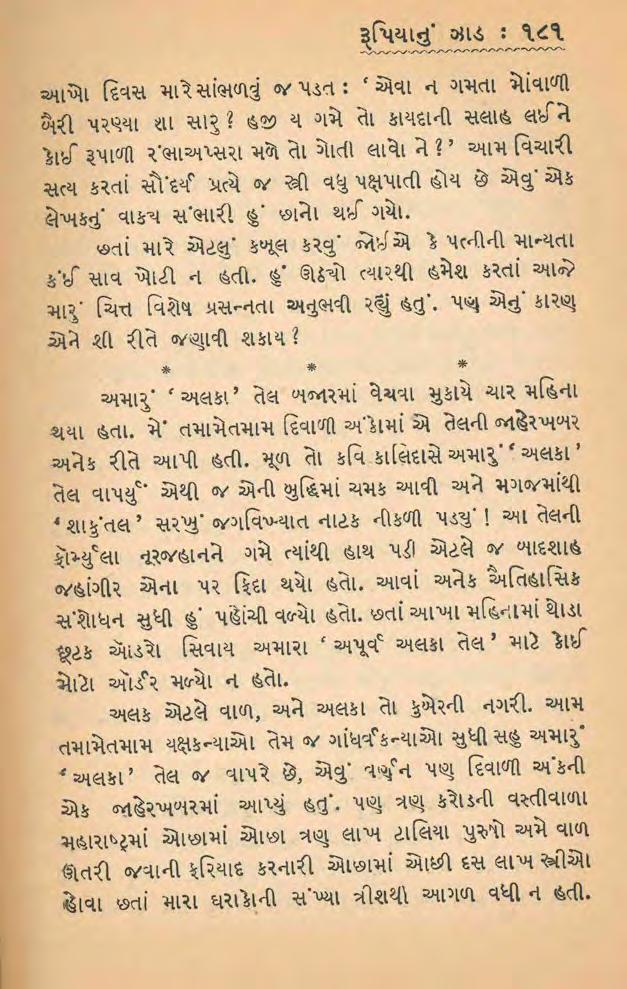 રૂપિયાનું ઝાડ : ૧૮૧
આખો દિવસ મારે સાંભળવું જ પડત : ‘ એવા ન ગમતા મોંવાળી
બૈરી પરણ્યા શા સારુ ? હજી ય ગમે તો કાયદાની સલાહ લઈને
કોઈ રૂપાળી રંભાઅપ્સરા મળે તો ગોતી લાવો ને ? ’ આમ વિચારી
સત્ય કરતાં સૌંદર્ય પ્રત્યે જ સ્ત્રી વધુ પક્ષપાતી હોય છે એવું એક
લેખકનું વાક્ય સંભારી હું છાનો થઈ ગયો.
છતાં મારે એટલું કબૂલ કરવું જોઈએ કે પત્નીની માન્યતા
કંઈ સાવ ખોટી ન હતી. હું ઊઠ્યો ત્યારથી હમેશ કરતાં આજે
મારું ચિત્ત વિશેષ પ્રસન્નતા અનુભવી રહ્યું હતું. પણ એનું કારણ
એને શી રીતે જણાવી શકાય ?
* * *
અમારું ‘ અલકા ’ તેલ બજારમાં વેચવા મુકાયે ચાર મહિના
થયા હતા. મેં તમામેતમામ દિવાળી અંકોમાં એ તેલની જાહેરખબર
અનેક રીતે આપી હતી. મૂળ તો કવિ કાલિદાસે અમારું ‘ અલકા ’
તેલ વાપર્યું એથી જ એની બુદ્ધિમાં ચમક આવી અને મગજમાંથી
‘ શાકુંતલ ’ સરખું જગવિખ્યાત નાટક નીકળી પડ્યું ! આ તેલની
ફૉર્મ્યુલા નૂરજહાનને ગમે ત્યાંથી હાથ પડી એટલે જ બાદશાહ
જહાંગીર એના પર ફિદા થયો હતો. આવાં અનેક ઐતિહાસિક
સંશોધન સુધી હું પહોંચી વળ્યો હતો. છતાં આખા મહિનામાં થોડા
છૂટક ઑડરો સિવાય અમારા ‘ અપૂર્વ અલકા તેલ ’ માટે કોઈ
મોટો ઑર્ડર મળ્યો ન હતો.
અલક એટલે વાળ, અને અલકા તો કુબેરની નગરી. આમ
તમામેતમામ યક્ષકન્યાઓ તેમ જ ગાંધર્વકન્યાઓ સુધી સહુ અમારું
‘ અલકા ’ તેલ જ વાપરે છે, એવું વર્ણન પણ દિવાળી અંકની
એક જાહેરખબરમાં આપ્યું હતું. પણ ત્રણ કરોડની વસ્તીવાળા
મહારાષ્ટ્રમાં ઓછામાં ઓછા ત્રણ લાખ ટાલિયા પુરુષો અમે વાળ
ઊતરી જવાની ફરિયાદ કરનારી ઓછામાં ઓછી દસ લાખ સ્ત્રીઓ
હોવા છતાં મારા ઘરાકોની સંખ્યા ત્રીશથી આગળ વધી ન હતી.